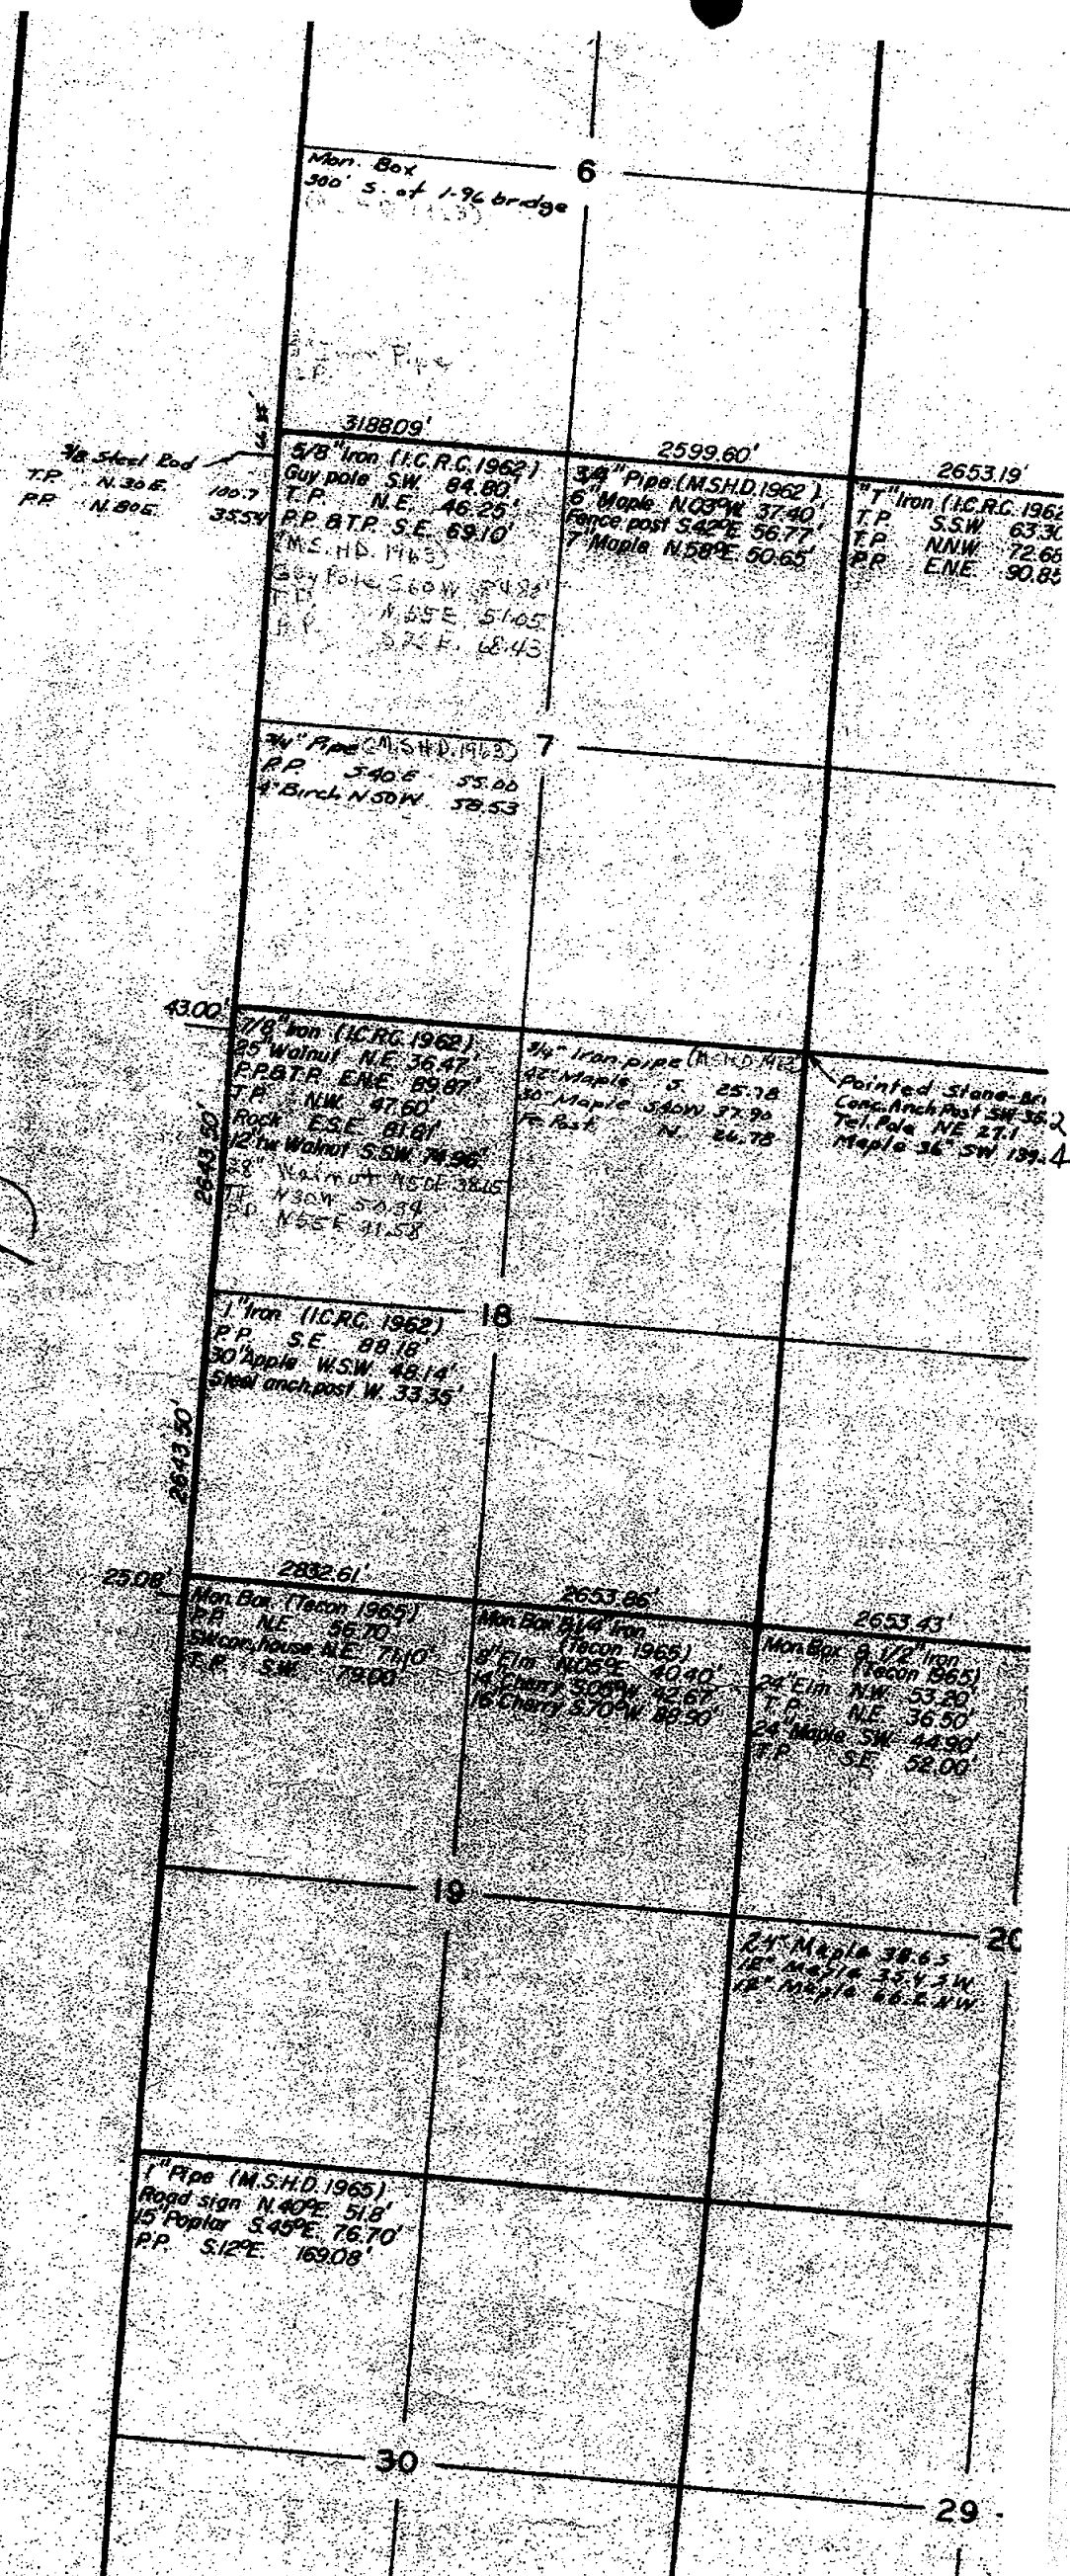 6
Mon. Box
300' S. of I-96 bridge
Iron Pipe
66.35'
3188.09'
2599.60'
2653.19'
3/8 Steel Rod
T.P. N.30E. 100.7
P.P. N.80E. 355.4
5/8" Iron (I.C.R.C. 1962)
Guy pole S.W. 84.80'
T.P. N.E. 46.25'
P.P. & T.P. S.E. 69.10'
(M.S.H.D. 1963)
Guy Pole S60W 84.80'
T.P. N.65E. 51.05
P.P. S75E. 68.43
3/4" Pipe (M.S.H.D. 1962)
6" Maple N.03°W. 37.40'
Fence post S.42°E. 56.77'
7" Maple N.58°E. 50.65'
"T" Iron (I.C.R.C. 1962
T.P. S.S.W. 63.30
T.P. N.N.W. 72.68
P.P. E.N.E. 90.85
7
3/4" Pipe (M.S.H.D. 1963)
P.P. S40E 55.00
4" Birch N50W. 58.53
43.00'
7/8" Iron (I.C.R.C. 1962)
25" Walnut N.E. 36.47'
P.P. & T.P. E.N.E. 89.87'
T.P. N.W. 47.60'
Rock E.S.E. 81.81'
12" tw. Walnut S.S.W. 74.96'
28" Walnut N50E 38.65
T.P. N30W 50.39
P.P. N55E 91.58
3/4" Iron pipe (M.S.H.D. 1962)
42" Maple S. 25.78
30" Maple S40W 37.90
Fe. Post N. 26.78
Pointed Stone-Bri
Conc. Anch Post SW 36.2
Tel. Pole NE 27.1
Maple 36" SW 139.4
2643.50'
18
1" Iron (I.C.R.C. 1962)
P.P. S.E. 88.18'
30" Apple W.S.W. 48.14'
Steel anch. post W. 33.35'
2643.50'
25.08'
2832.61'
2653.86'
2653.43'
Mon. Box (Tecon 1965)
P.P. N.E. 56.70'
SW cor. house N.E. 71.10'
T.P. S.W. 79.00'
Mon. Box & 1/4" Iron
(Tecon 1965)
8" Elm N.05°E. 40.40'
14" Cherry S.06°W. 42.67'
16" Cherry S.70°W. 89.90'
Mon. Box & 1/2" Iron
(Tecon 1965)
24" Elm N.W. 53.20'
T.P. N.E. 36.50'
24" Maple S.W. 44.90'
T.P. S.E. 52.00'
19
20
24" Maple 38.6 S
12" Maple 35.4 SW
18" Maple 66.2 NW
1" Pipe (M.S.H.D. 1965)
Road sign N.40°E. 51.8'
15" Poplar S.45°E. 76.70'
P.P. S.12°E. 169.08'
30
29